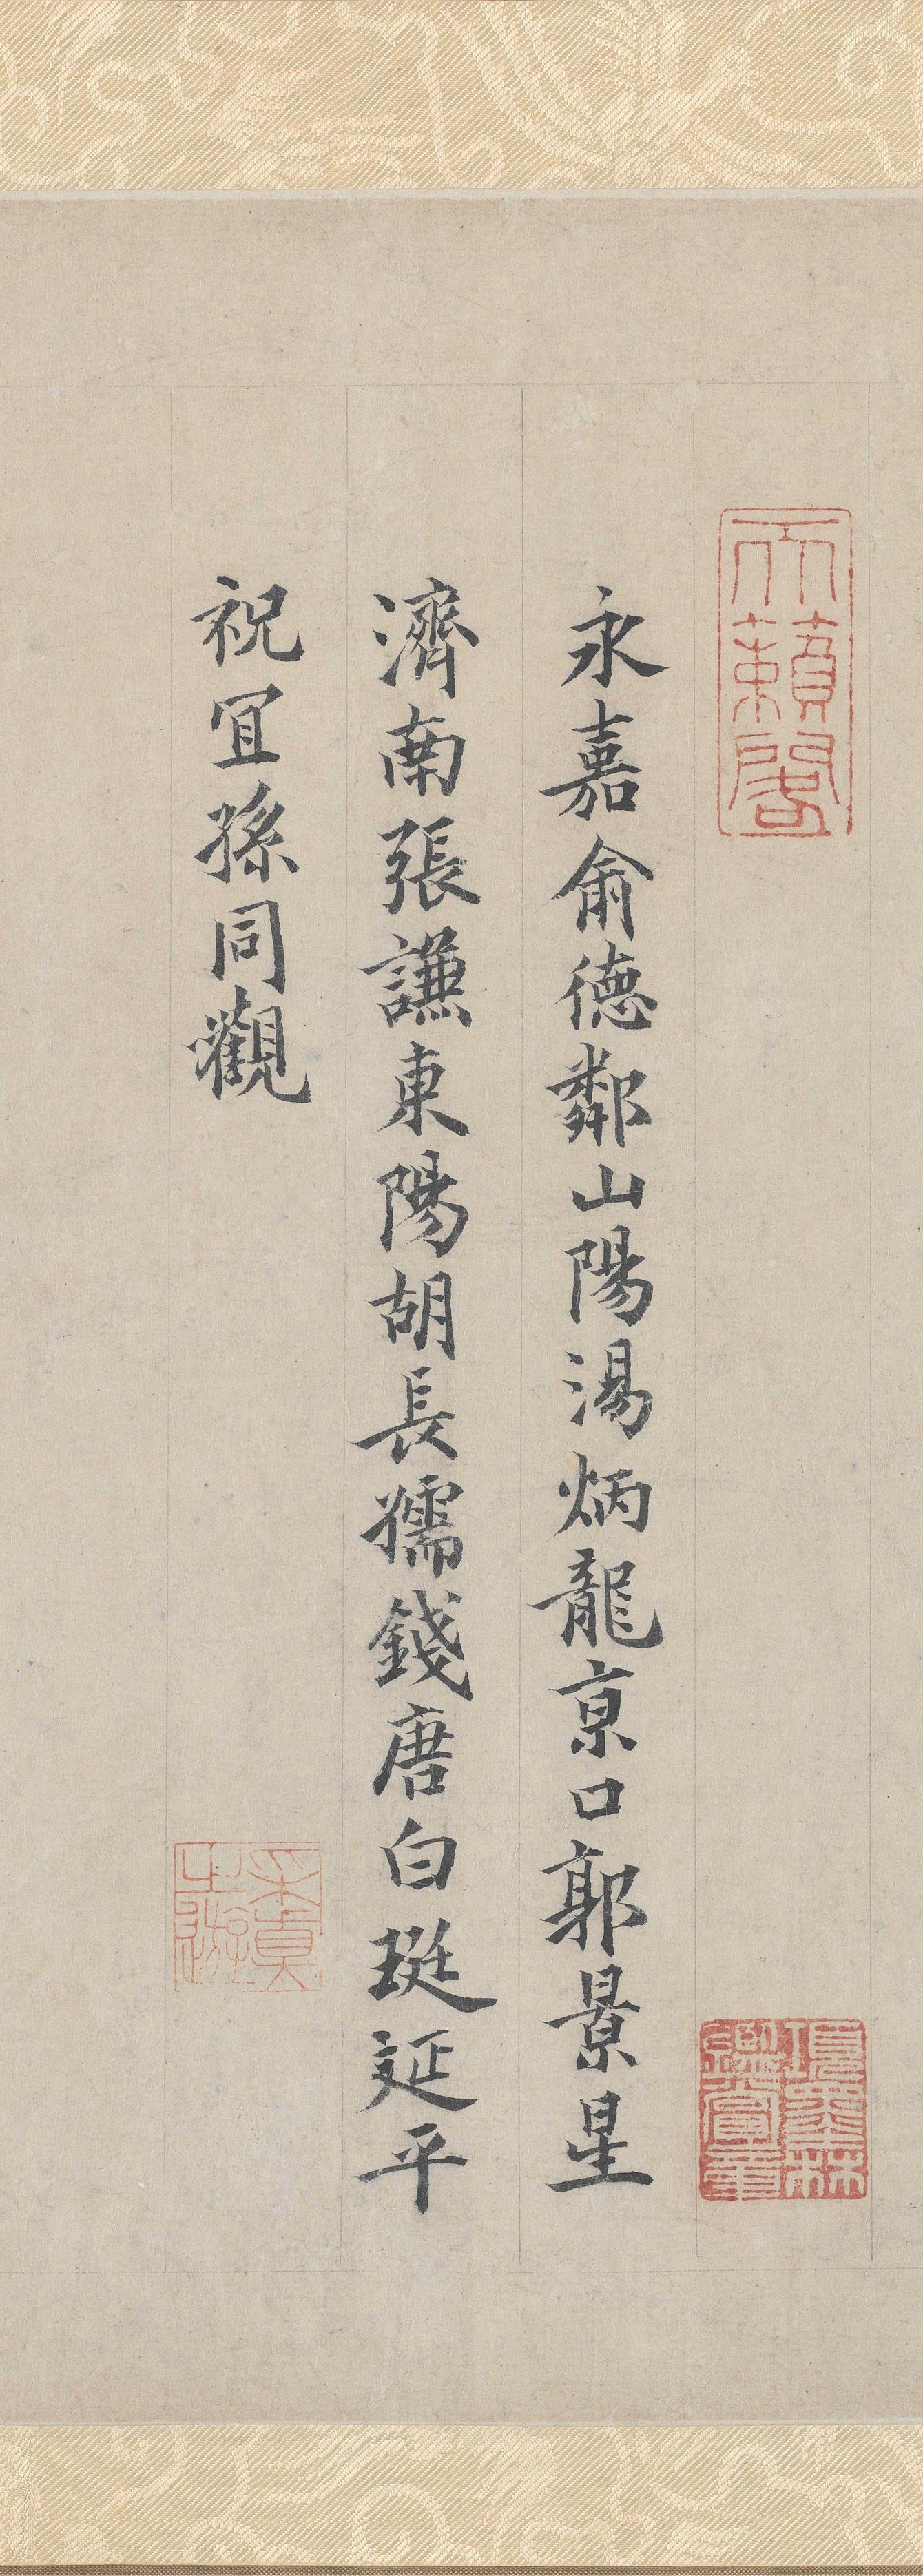 天籟閣
項墨林鑑賞章
永嘉俞德鄰山陽湯炳龍京口郭景星
濟南張謙東陽胡長孺錢唐白珽延平
祝宜孫同觀
平生真賞